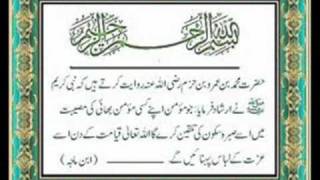 بسم الله الرحمن الرحيم
حضرت محمد بن عمرو بن حزم رضی اللہ عنہ روایت کرتے ہیں کہ نبی کریم
ﷺ نے ارشاد فرمایا: جو مؤمن اپنے کسی مؤمن بھائی کی مصیبت
میں اسے صبر و سکون کی تلقین کرے گا اللہ تعالیٰ قیامت کے دن اسے
عزت کے لباس پہنائیں گے۔ (ابن ماجہ)